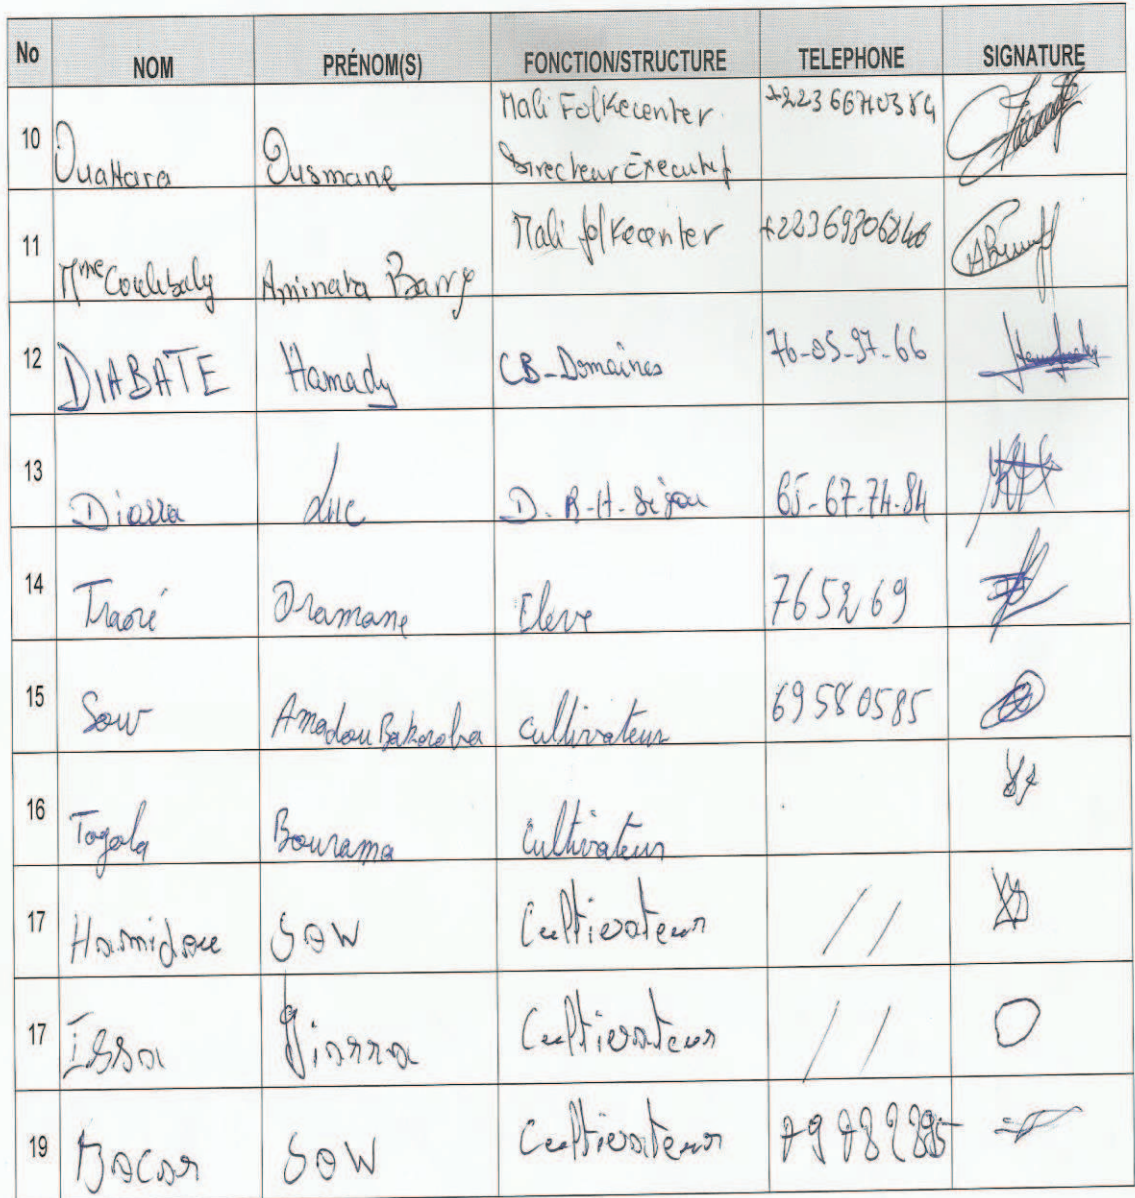 No NOM PRÉNOM(S) FONCTION/STRUCTURE TELEPHONE SIGNATURE
10 Ouattara Ousmane Mali Folkecenter
Directeur Executif
11 Mme Coulibaly Aminata Barry Mali folkecenter
12 DIABATE Hamady CB-Domaines 76-05-97-66
13 Diarra Luc D.R-H-Ségou 65-67-74-84
14 Traoré Dramane Eleve 765269
15 Sow Amadou Bakoroba cultivateur 69580585
16 Togola Bourama cultivateur
17 Hamidou SOW Cultivateur //
17 Issa Diarra Cultivateur //
19 Bocar SOW Cultivateur